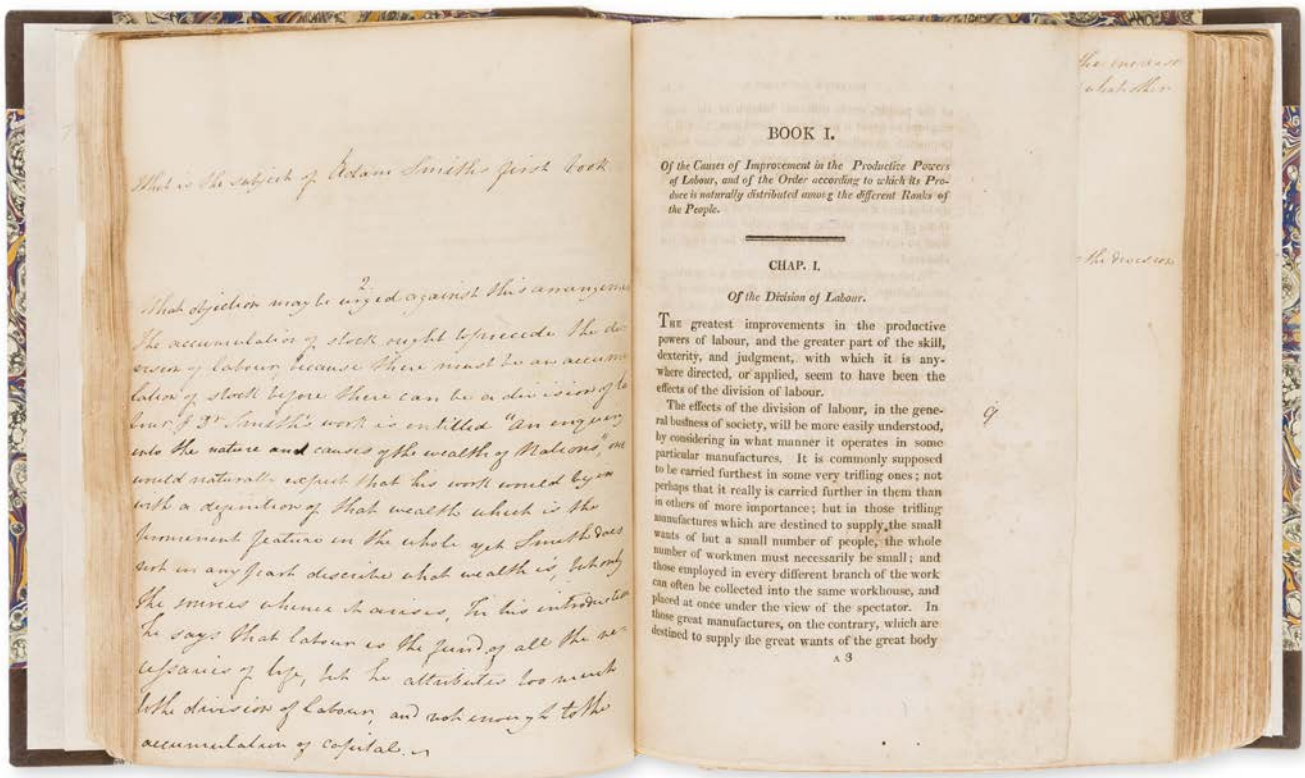 What is the subject of Adam Smith's first book
What objection may be urged against this arrangeme
?
The accumulation of stock ought to precede the di-
vision of labour because there must be an accumu
lation of stock before there can be a division of la
bour. Dr. Smith's work is entitled "An enquiry
into the nature and causes of the wealth of Nations", one
would naturally expect that his work would begin
with a definition of that wealth which is the
prominent feature in the whole yet Smith does
not in any part describe what wealth is, but only
the sources whence it arises, In his introduction
he says that labour is the fund of all the ne-
cessaries of life, but he attributes too much
to the division of labour, and not enough to the
accumulation of capital.
BOOK I.
Of the Causes of Improvement in the Productive Powers
of Labour, and of the Order according to which its Pro-
duce is naturally distributed among the different Ranks of
the People.
CHAP. I.
Of the Division of Labour.
THE greatest improvements in the productive
powers of labour, and the greater part of the skill,
dexterity, and judgment, with which it is any-
where directed, or applied, seem to have been the
effects of the division of labour.
The effects of the division of labour, in the gene-
ral business of society, will be more easily understood,
by considering in what manner it operates in some
particular manufactures. It is commonly supposed
to be carried furthest in some very trifling ones; not
perhaps that it really is carried further in them than
in others of more importance; but in those trifling
manufactures which are destined to supply the small
wants of but a small number of people, the whole
number of workmen must necessarily be small; and
those employed in every different branch of the work
can often be collected into the same workhouse, and
placed at once under the view of the spectator. In
those great manufactures, on the contrary, which are
destined to supply the great wants of the great body
A 3
9
the increase
what other
the division